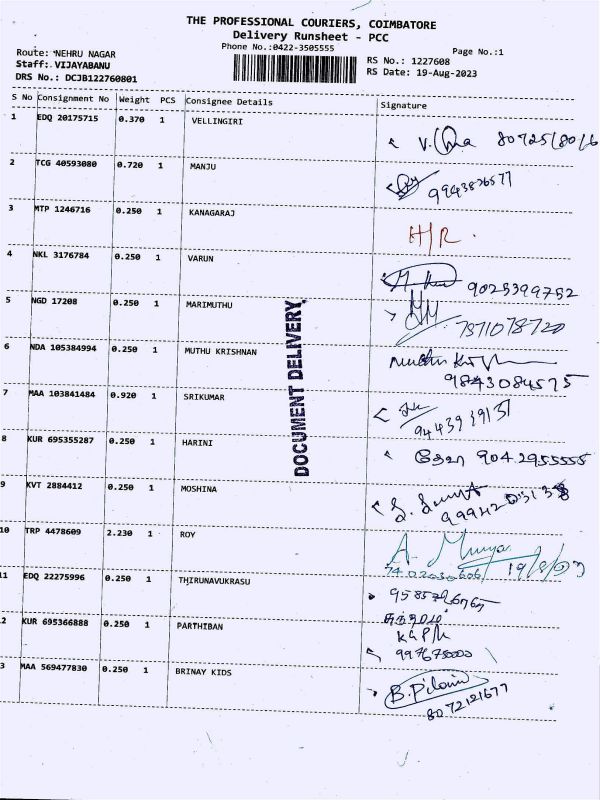 THE PROFESSIONAL COURIERS, COIMBATORE
Delivery Runsheet - PCC
Phone No.:0422-3505555
Page No.:1
Route: NEHRU NAGAR
Staff: VIJAYABANU
DRS No.: DCJB122760801
RS No.: 1227608
RS Date: 19-Aug-2023
S No Consignment No Weight PCS Consignee Details Signature
1 EDQ 20175715 0.370 1 VELLINGIRI
2 TCG 40593080 0.720 1 MANJU 9943826577
3 MTP 1246716 0.250 1 KANAGARAJ H/R.
4 NKL 3176784 0.250 1 VARUN 9025399752
5 NGD 17208 0.250 1 MARIMUTHU 7371078720
6 NDA 105384994 0.250 1 MUTHU KRISHNAN
9843084575
7 MAA 103841484 0.920 1 SRIKUMAR
8 KUR 695355287 0.250 1 HARINI 9042955555
9 KVT 2884412 0.250 1 MOSHINA
10 TRP 4478609 2.230 1 ROY A.
11 EDQ 22275996 0.250 1 THIRUNAVUKRASU
2 KUR 695366888 0.250 1 PARTHIBAN
3 MAA 569477830 0.250 1 BRINAY KIDS B.
8072121677
DOCUMENT DELIVERY